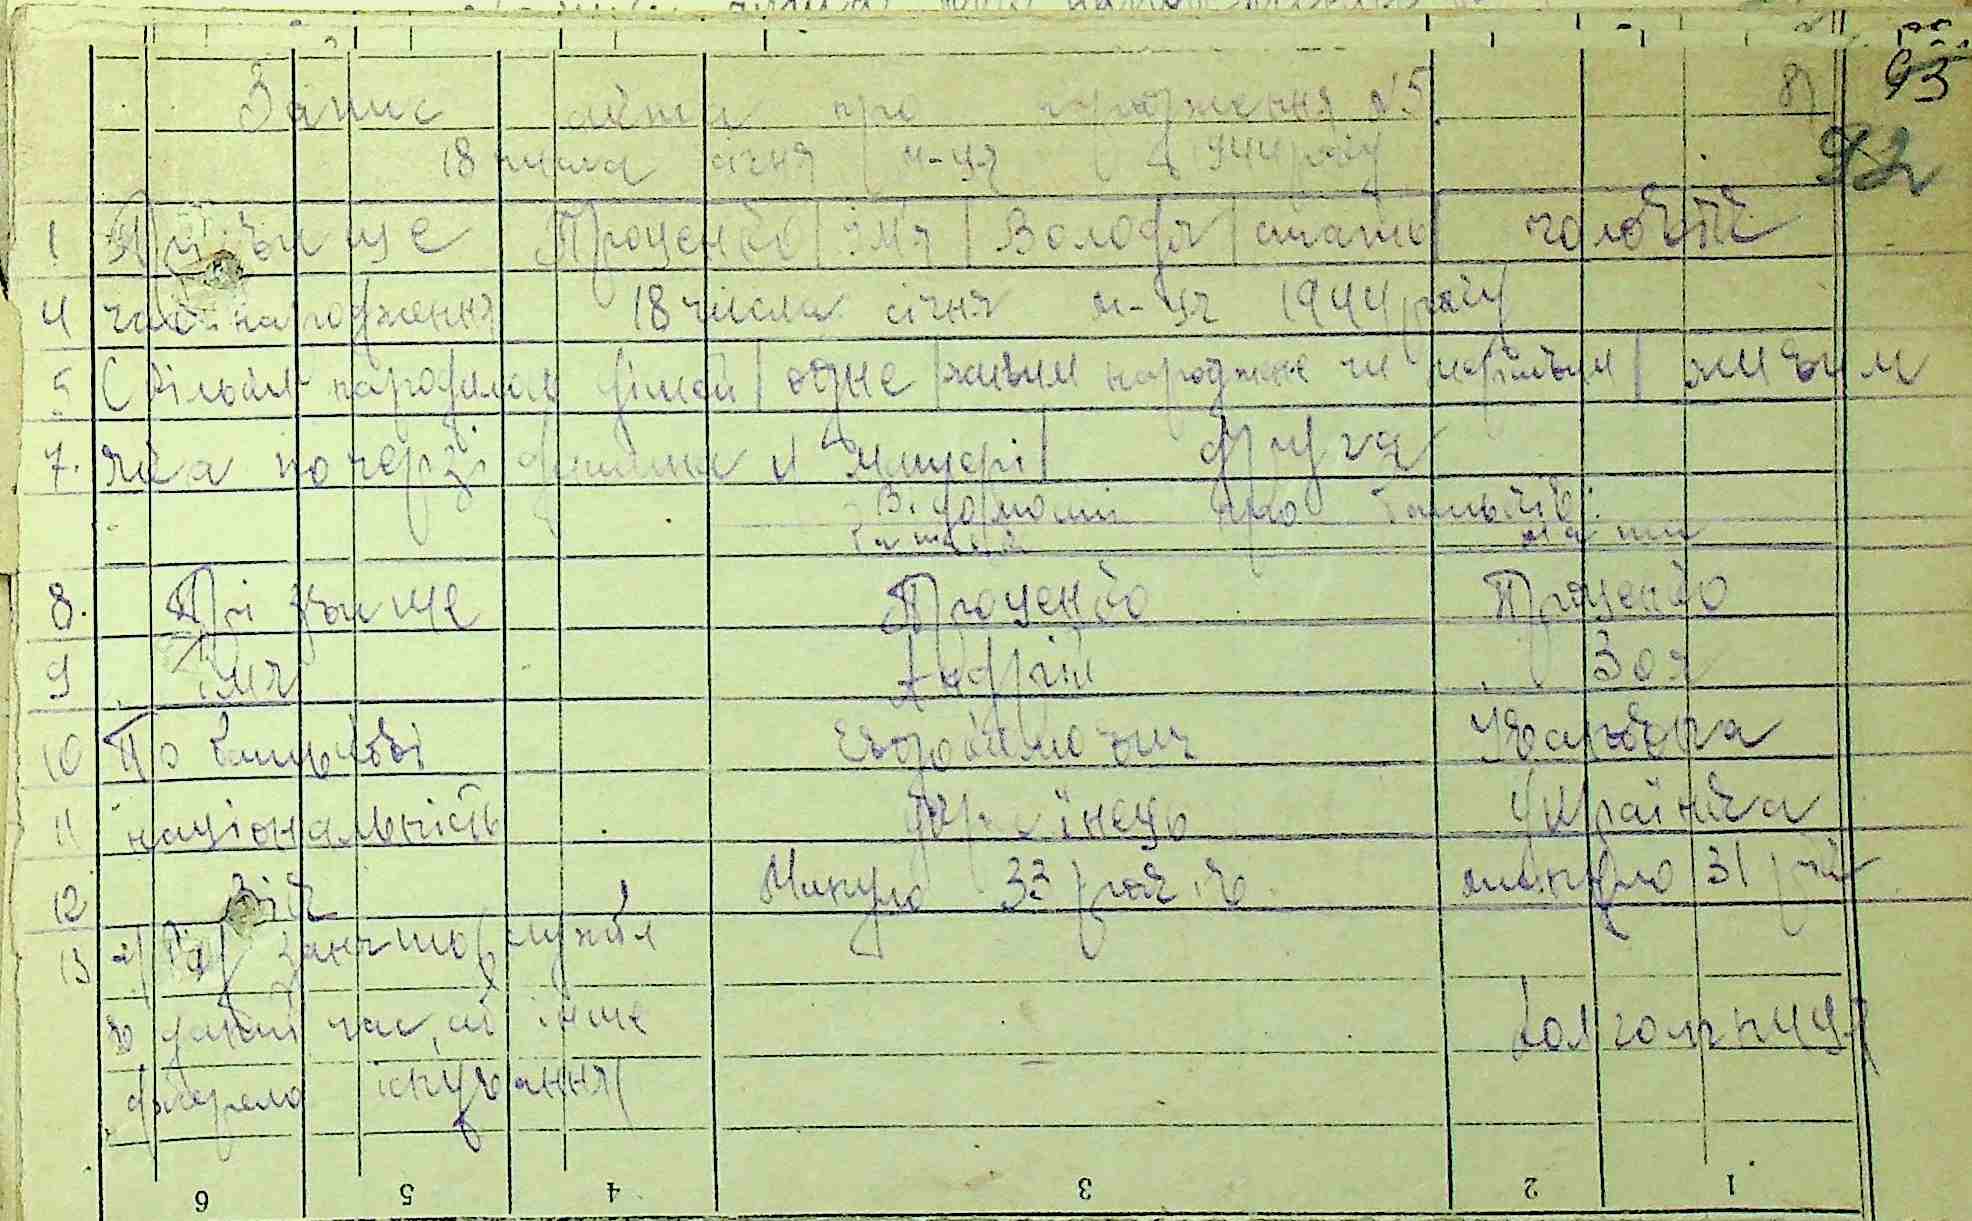 93
92
Запис акта про народження №5
18 числа січня м-ця 1944 року
1 Прізвище Проценко / ім'я / Володя / стать / чоловіч
4 час народження 18 числа січня м-ця 1944 року
5 Скільки народилось дітей / одне / живим народжене чи мертвим / живим
7. яка по черзі дитина у матері / друга
Відомості про батьків:
батька мати
8. Прізвище Проценко Проценко
9 ім'я Андрій Зоя
10 По батькові Евдокимович
11 національність українець Українка
12 Вік Минуло 33 років минуло 31 рік
13 а) Рід заняття, служби
в даний час, або інше
джерело існування
6 5 4 3 2 1